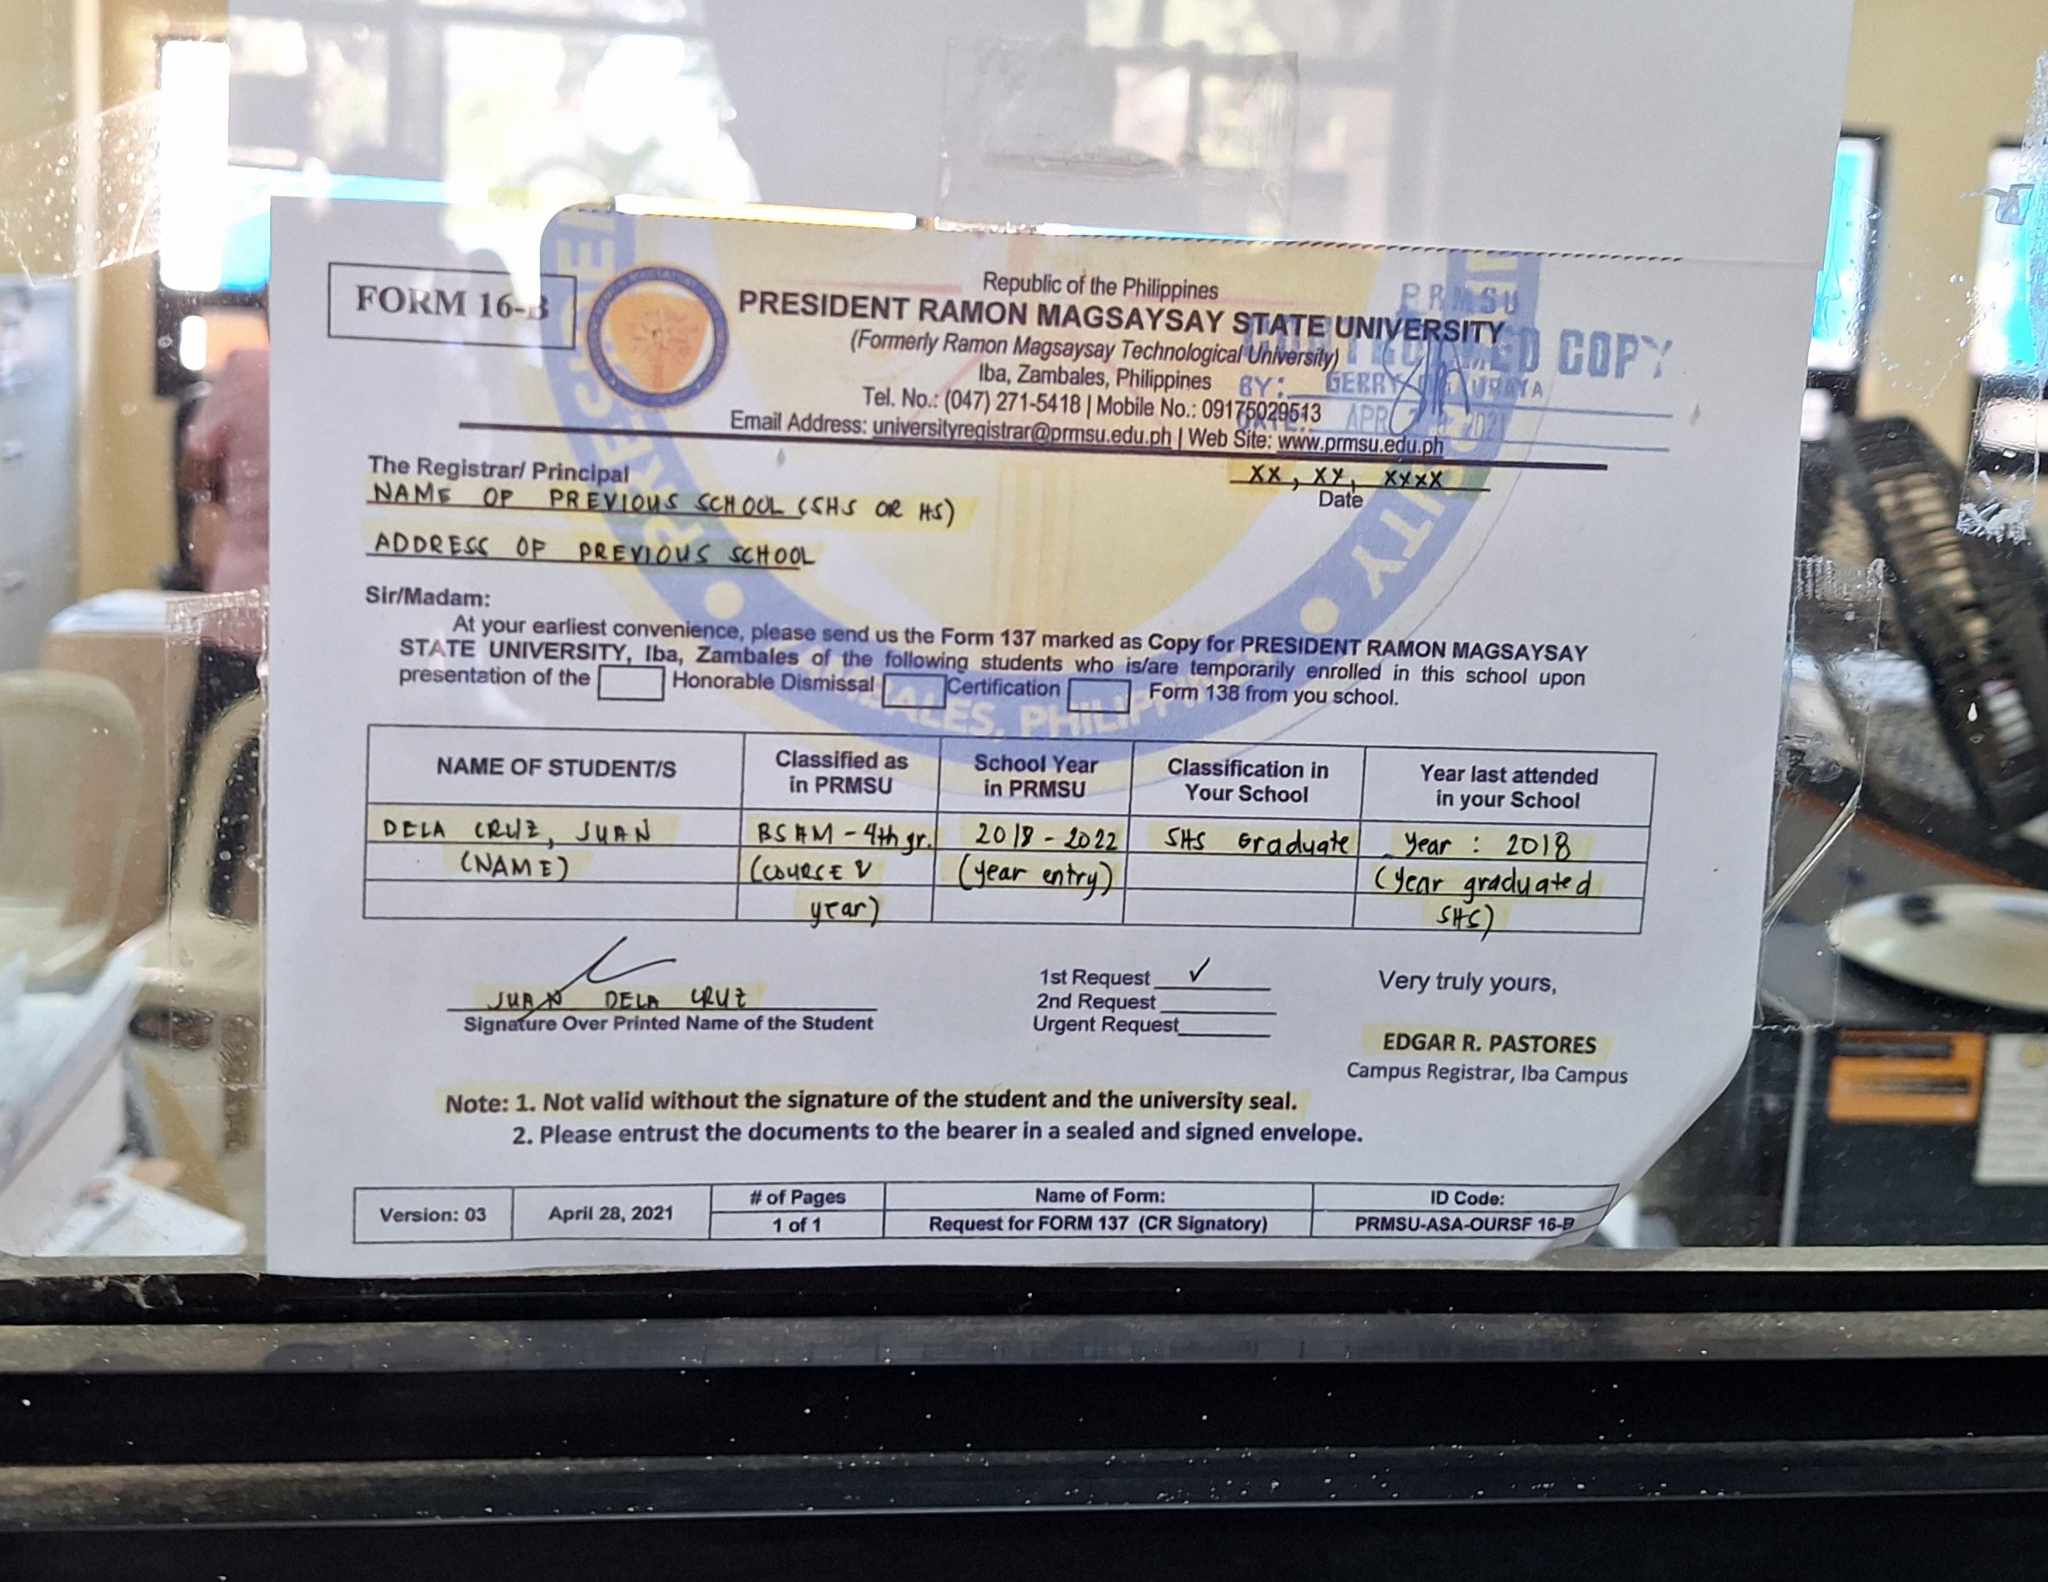 FORM 16-B
Republic of the Philippines
PRESIDENT RAMON MAGSAYSAY STATE UNIVERSITY
(Formerly Ramon Magsaysay Technological University)
Iba, Zambales, Philippines
Tel. No.: (047) 271-5418 | Mobile No.: 09175029513
Email Address: universityregistrar@prmsu.edu.ph | Web Site: www.prmsu.edu.ph
PRMSU
COPY
BY: GERRY
APR 2021
The Registrar/ Principal
XX, XX, XXXX
Date
NAME OF PREVIOUS SCHOOL (SHS OR HS)
ADDRESS OF PREVIOUS SCHOOL
Sir/Madam:
At your earliest convenience, please send us the Form 137 marked as Copy for PRESIDENT RAMON MAGSAYSAY
STATE UNIVERSITY, Iba, Zambales of the following students who is/are temporarily enrolled in this school upon
presentation of the Honorable Dismissal Certification Form 138 from you school.
NAME OF STUDENT/S Classified as in PRMSU School Year in PRMSU Classification in Your School Year last attended in your School
DELA CRUZ, JUAN BSHM - 4th yr. 2018 - 2022 SHS Graduate Year : 2018
(NAME) (COURSE & year) (year entry) (year graduated SHS)
JUAN DELA CRUZ
Signature Over Printed Name of the Student
1st Request ✓
2nd Request
Urgent Request
Very truly yours,
EDGAR R. PASTORES
Campus Registrar, Iba Campus
Note: 1. Not valid without the signature of the student and the university seal.
2. Please entrust the documents to the bearer in a sealed and signed envelope.
Version: 03 April 28, 2021 # of Pages 1 of 1 Name of Form: Request for FORM 137 (CR Signatory) ID Code: PRMSU-ASA-OURSF 16-B